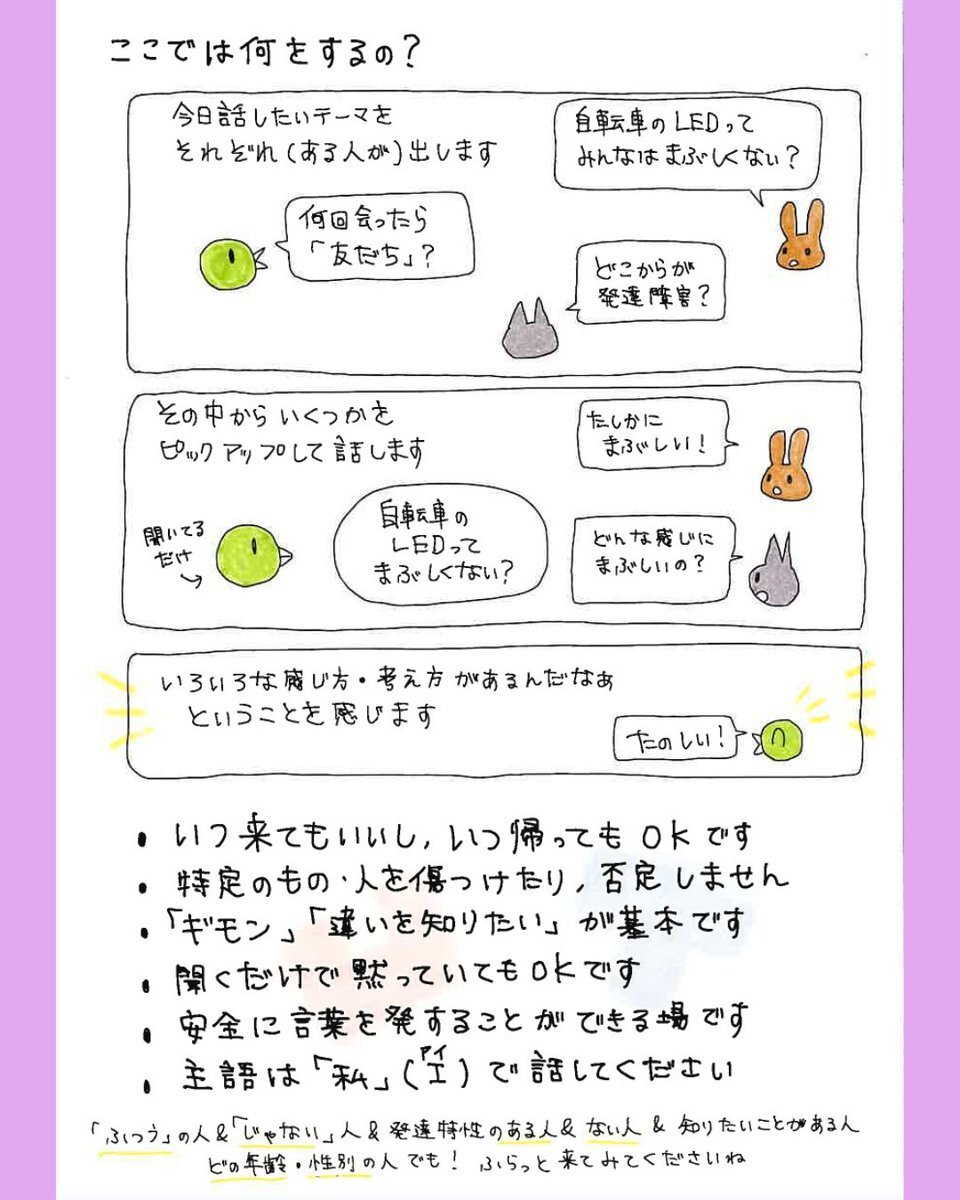 ここでは何をするの？
今日話したいテーマを
それぞれ(ある人が)出します
自転車のLEDって
みんなはまぶしくない？
何回会ったら
「友だち」？
どこからが
発達障害？
その中からいくつかを
ピックアップして話します
たしかに
まぶしい！
聞いてる
だけ
自転車の
LEDって
まぶしくない？
どんな感じに
まぶしいの？
いろいろな感じ方・考え方があるんだなぁ
ということを感じます
たのしい！
・いつ来てもいいし,いつ帰ってもOKです
・特定のもの・人を傷つけたり,否定しません
・「ギモン」「違いを知りたい」が基本です
・聞くだけで黙っていてもOKです
・安全に言葉を発することができる場です
アイ
・主語は「私」(I)で話してください
「ふつう」の人&「じゃない」人&発達特性のある人&ない人&知りたいことがある人
どの年齢・性別の人でも！ふらっと来てみてくださいね